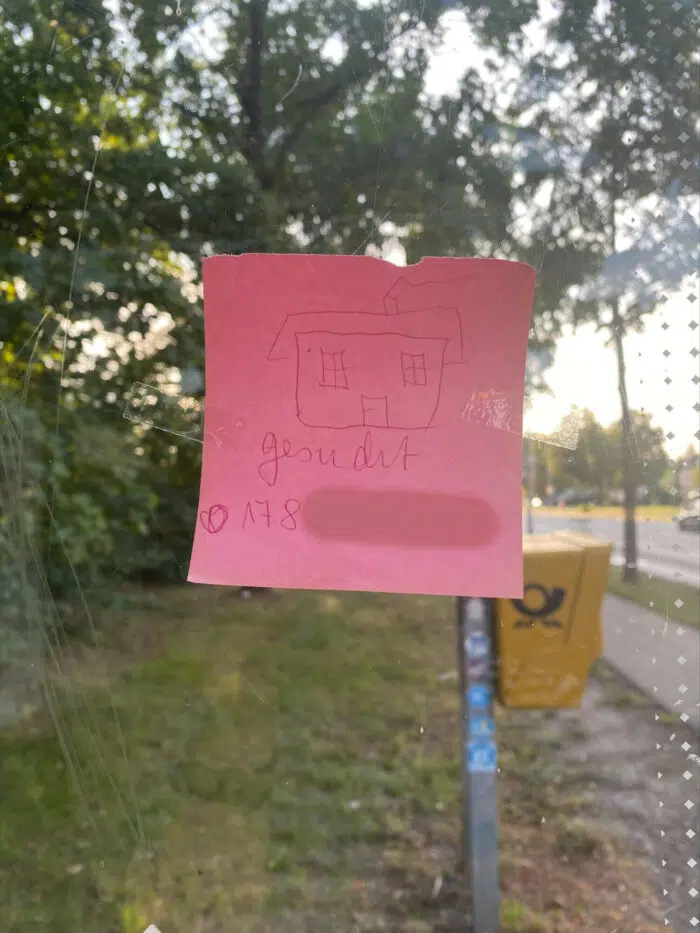 gesucht
0178